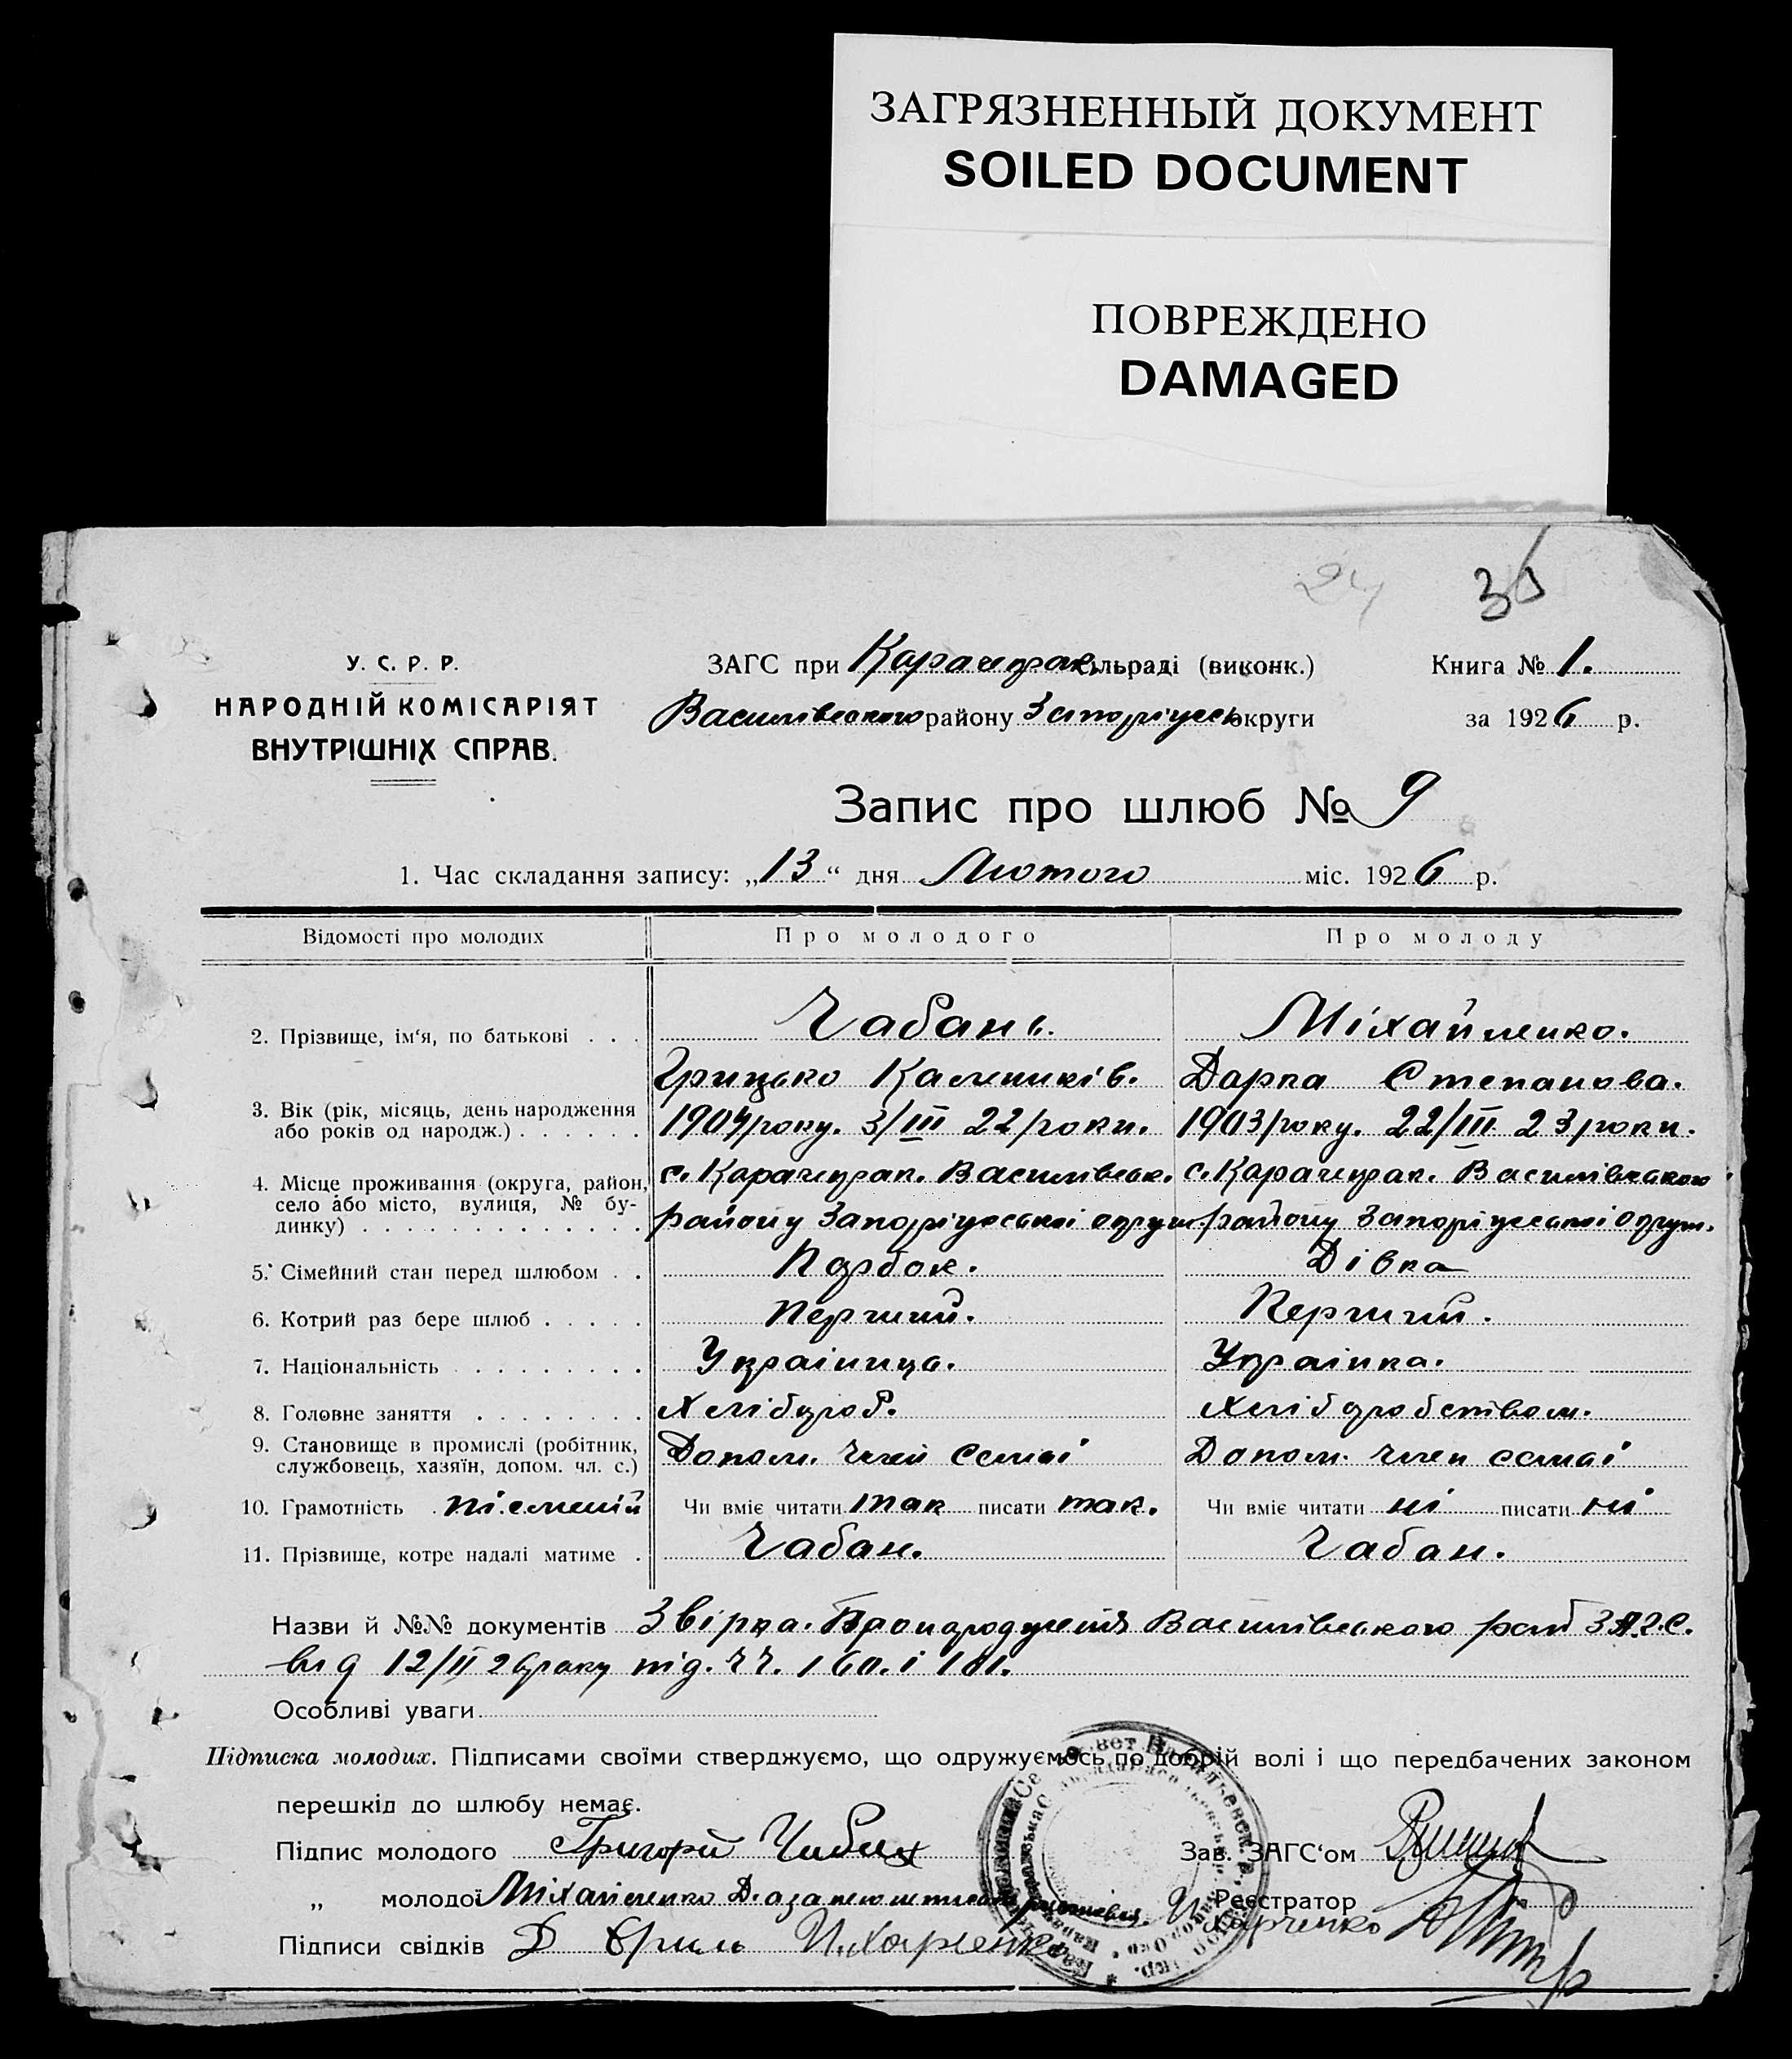 ЗАГРЯЗНЕННЫЙ ДОКУМЕНТ
SOILED DOCUMENT
ПОВРЕЖДЕНО
DAMAGED
24 36
У. С. Р. Р.
НАРОДНІЙ КОМІСАРІЯТ
ВНУТРІШНІХ СПРАВ.
ЗАГС при Карачекрак. сільраді (виконк.) Книга № 1.
Василівського району Запоріжськ округи за 1926 р.
Запис про шлюб № 9
1. Час складання запису: „13“ дня Лютого міс. 1926 р.
Відомості про молодих Про молодого Про молоду
2. Прізвище, ім‘я, по батькові . . . Чабань. Міхайленко.
Грицько Калеників. Дарка Степанова.
3. Вік (рік, місяць, день народження або років од народж.) . . . . . . 1904 року. 3/III 22 роки. 1903 року. 22/III 23 роки.
4. Місце проживання (округа, район, село або місто, вулиця, № будинку) . . . с. Карачекрак. Василівськ. с. Карачекрак. Василівського
району Запоріжської округи. району Запоріжської округ.
5. Сімейний стан перед шлюбом . . Парбок. Дівка
6. Котрий раз бере шлюб . . . . . Перший. Перший.
7. Національність . . . . . . . . . Українць. Українка.
8. Головне заняття . . . . . . . . Хлібороб. Хліборобством.
9. Становище в промислі (робітник, службовець, хазяїн, допом. чл. с.) Допом. член семьі Допом. член семьі
10. Грамотність письменій Чи вміє читати так писати так. Чи вміє читати ні писати ні
11. Прізвище, котре надалі матиме . Чабан. Чабан.
Назви й №№ документів Звірка. Про народження Василівського рай ЗАГС.
від 12/II 26 року під. чч. 160. і 161.
Особливі уваги
Підписка молодих. Підписами своїми стверджуємо, що одружуємось по добрій волі і що передбачених законом
перешкід до шлюбу немає.
Підпис молодого Григорій Чабан Зав. ЗАГС‘ом
„ молодої Міхайленко Д. а за неї Реєстратор
И. Харченко
Підписи свідків Д И. Харченко